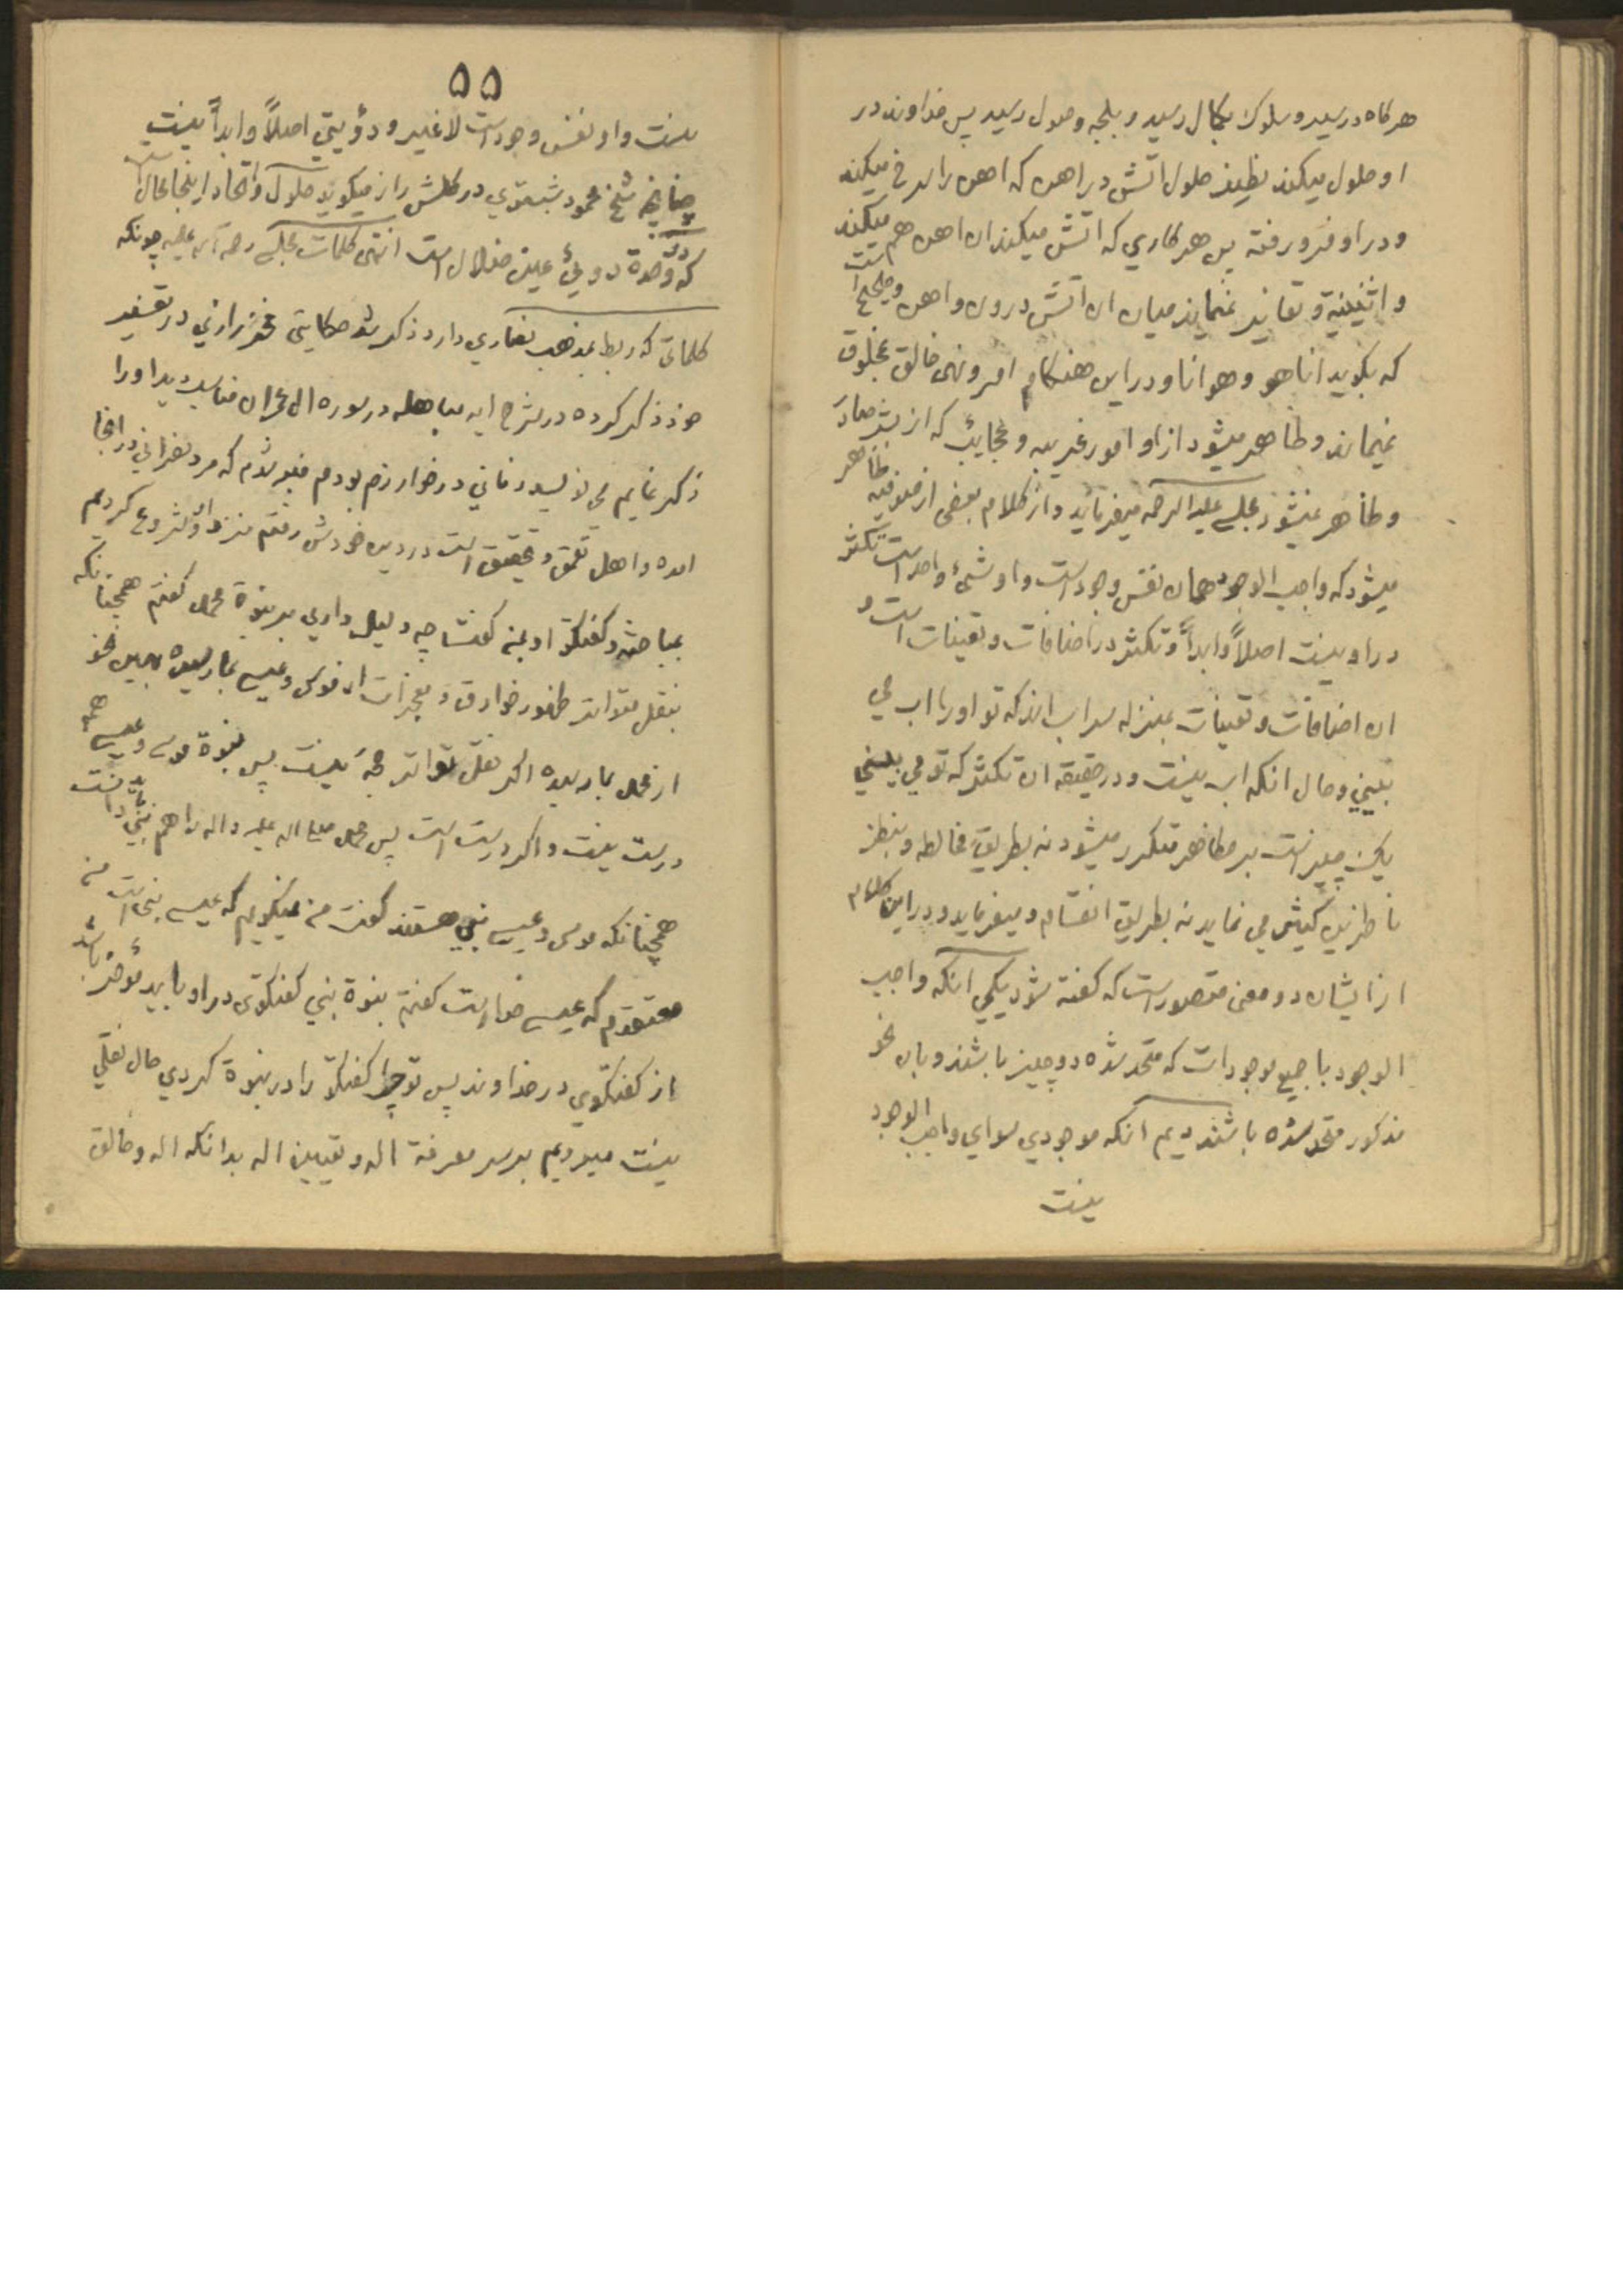 هرکاه در سیر و سلوک بکمال رسید و بلجه وصول رسید پس خداوند در
او حلول میکند نظیر حلول اتش در اهن که اهن را سرخ میکند
و در او فرو رفته پس هر کاری که اتش میکند ان اهن هم میکند
و اثنینیة و تغایر نمیماند میان ان اتش درون و اهن و صحیح است
که بکوید انا هو و هو انا و در این هنکام امر و نهی خالق بمخلوق
نمیماند و ظاهر میشود از او امور غریبه و عجایب که از بشر صادر
و ظاهر نمیشود مجلسی علیه الرحمه میفرماید و از کلام بعضی از صوفیه ظاهر
میشود که واجب الوجود همان نفس وجود است و او شیئ واحد است تکثر
در او نیست اصلاً و ابداً و تکثر در اضافات و تعینات است و
ان اضافات و تعینات بمنزله سراب اند که تو او را اب می
بینی و حال انکه اب نیست و در حقیقه ان تکثر که تو می بینی
یک چیز است بر مظاهر متکرر میشود نه بطریق مخالطه و بنظر
ناظرین کثیر می نماید نه بطریق انقسام و میفرماید و در این کلام
از ایشان دو معنی متصور است که کفته شود یکی انکه واجب
الوجود با جمیع موجودات که متحد شده دو چیز باشند و بان نحو
مذکور متحد شده باشند دیم انکه موجودی سوای واجب الوجود
نیست
۵۵
نیست و او نفس وجود است لا غیر و دؤیتی اصلاً و ابداً نیست
چنانچه شیخ محمود شبستری در کلشن راز میکوید حلول و اتحاد اینجا محال است
که در وحدة دوئی عین ضلال است انتهی کلمات مجلسی رحمة الله علیه چونکه
کلماتی که ربط بمذهب نصاری دارد ذکر شد حکایتی فخر رازی در تفسیر
خود ذکر کرده در شرح ایه مباهله در سوره ال عمران مناسب دیدم او را
ذکر نمایم می نویسد زمانی در خوارزم بودم مخبر شدم که مرد نصرانی در انجا
امده و اهل تعمق و تحقیق است در دین خودش رفتم نزد او و شروع کردیم
بمباحثه و کفتکو او بمن کفت چه دلیل داری بر نبوة محمد کفتم همچنانکه
بنقل متواتر ظهور خوارق و معجزات از موسی و عیسی بما رسیده بهمین نحو
از محمد بما رسیده اکر نقل تواتر حجة نیست پس نبوة موسی و عیسی هم
درست نیست و اکر درست است پس محمد صلی الله علیه و اله را هم نبی باید دانست
همچنانکه موسی و عیسی نبی هستند کفت من نمیکویم که عیسی نبی است من
معتقدم که عیسی خدا است کفتم نبوة نبی کفتکوی در او باید مؤخر باشد
از کفتکوی در خداوند پس تو چرا کفتکو را در نبوة کردی حال نقلی
نیست میرویم بر سر معرفة اله و تعیین اله بدانکه اله و خالق